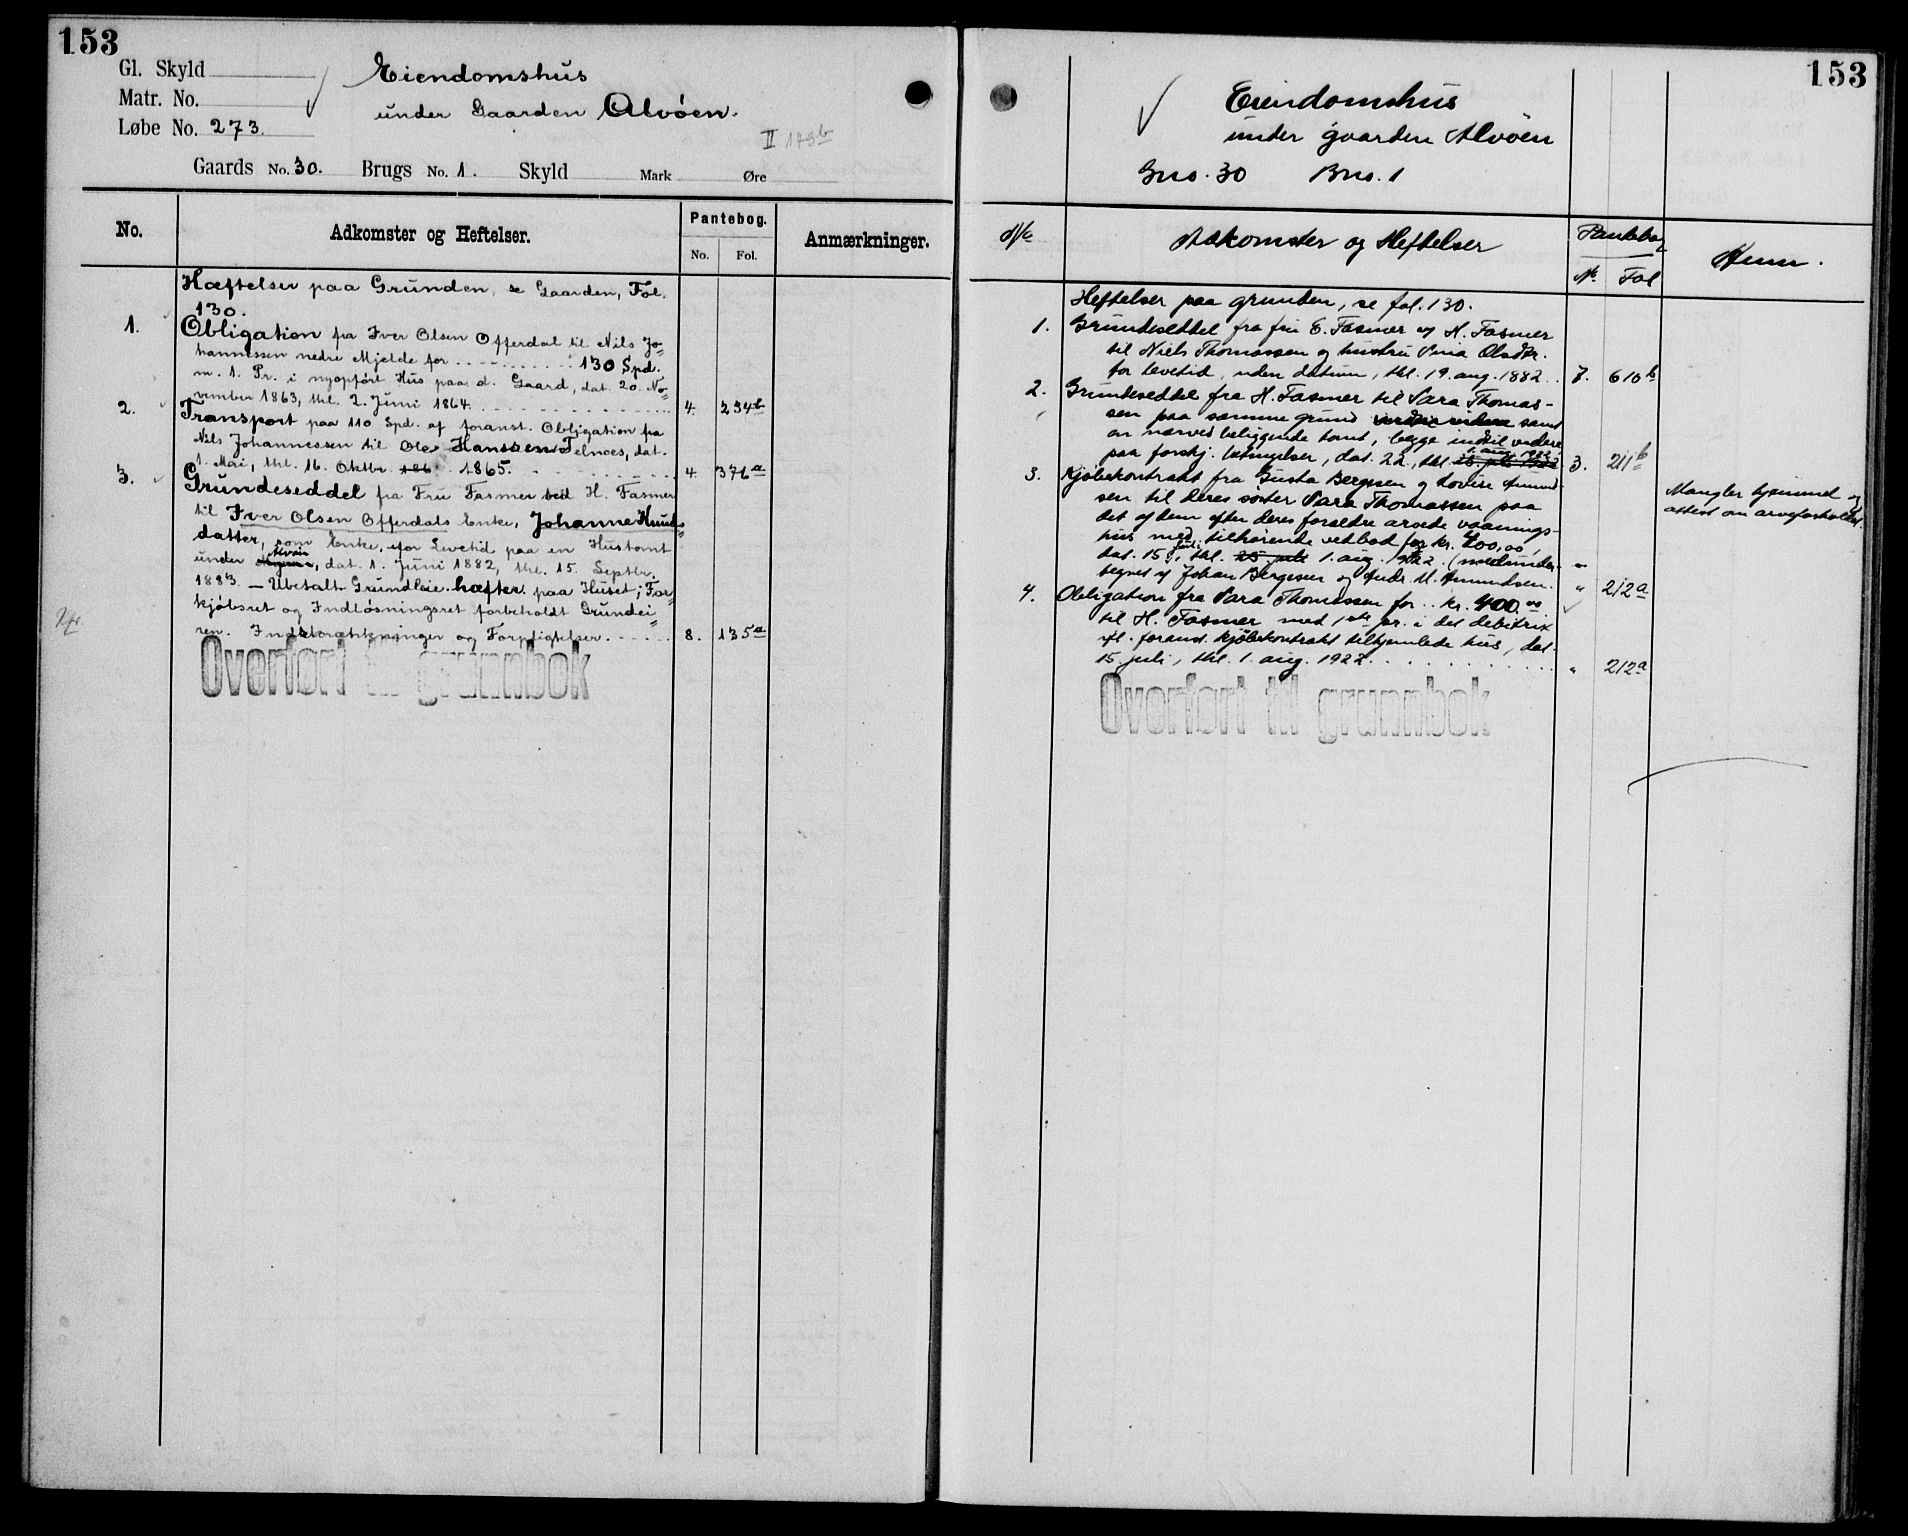 153
Gl. Skyld
Matr. No.
Løbe No. 273.
Eiendomshus
under Gaarden Alvöen.
II 179b
Gaards No. 30. Brugs No. 1. Skyld Mark Øre
No. Adkomster og Heftelser. Pantebog. Anmærkninger.
No. Fol.
Hæftelser paa Grunden, se Gaarden, Fol.
130.
1. Obligation fra Iver Olsen Offerdal til Nils Jo=
hannessen nedre Mjelde for 130 Spd.
m. 1. Pr. i nyopfört Hus paa d. Gaard, dat. 20. No=
vember 1863, thl. 2. Juni 1864. 4. 254b
2. Transport paa 110 Spd. af foranst. Obligation fra
Nils Johannessen til Ole Hanssen Telnæs, dat.
1. Mai, thl. 16. Oktbr. 186 1865. 4. 371a
3. Grundeseddel fra Fru Fasmer ved H. Fasmer
til Iver Olsen Offerdals Enke, Johanne Knuds=
datter, som Enke, for Levetid paa en Hustomt
under Alvöen, dat. 1. Juni 1882, thl. 15. Septbr.
1883. — Ubetalt Grundleie hæfter paa Huset; For=
kjöbsret og Indlösningsret forbeholdt Grundei=
ren. Indskrænkninger og Forpligtelser. 8. 135a
Overført til grunnbok
153
Eiendomshus
under gaarden Alvöen
Gno. 30 Bno. 1
No Adkomster og Heftelser Pantebog Anm.
No. Fol
Heftelser paa grunden, se fol. 130.
1. Grundeseddel fra fru E. Fasmer og H. Fasmer
til Niels Thomassen og hustru Sina Olsdtr.
for levetid, uden datum, thl. 19. aug. 1882. 7. 610b
2. Grundeseddel fra H. Fasmer til Sara Thomas-
sen paa samme grund samt
en nærved beliggende tomt, begge indtil videre
1. aug. 1922
paa forskj. betingelser, dat. 22, thl. 3. 211b
3. Kjöbekontrakt fra Gusta Bergesen og Lovise Amund-
sen til deres søster Sara Thomassen paa
det af dem efter deres forældre arvede vaanings-
hus med tilhørende vedbod for kr. 400,00,
dat. 15. juli, thl. 25 juli 1. aug. 1922. (medunder-
tegnet af Johan Bergesen og Andr. M. Amundsen. " 212a
Mangler hjemmel og
attest om arveforholdet.
4. Obligation fra Sara Thomassen for .. kr. 400.00
til H. Fasmer med 1ste pr. i det debitrix
ifl. foranst. kjöbekontrakt tilhjemlede hus, dat.
15. juli, thl. 1. aug. 1922. " 212a
Overført til grunnbok